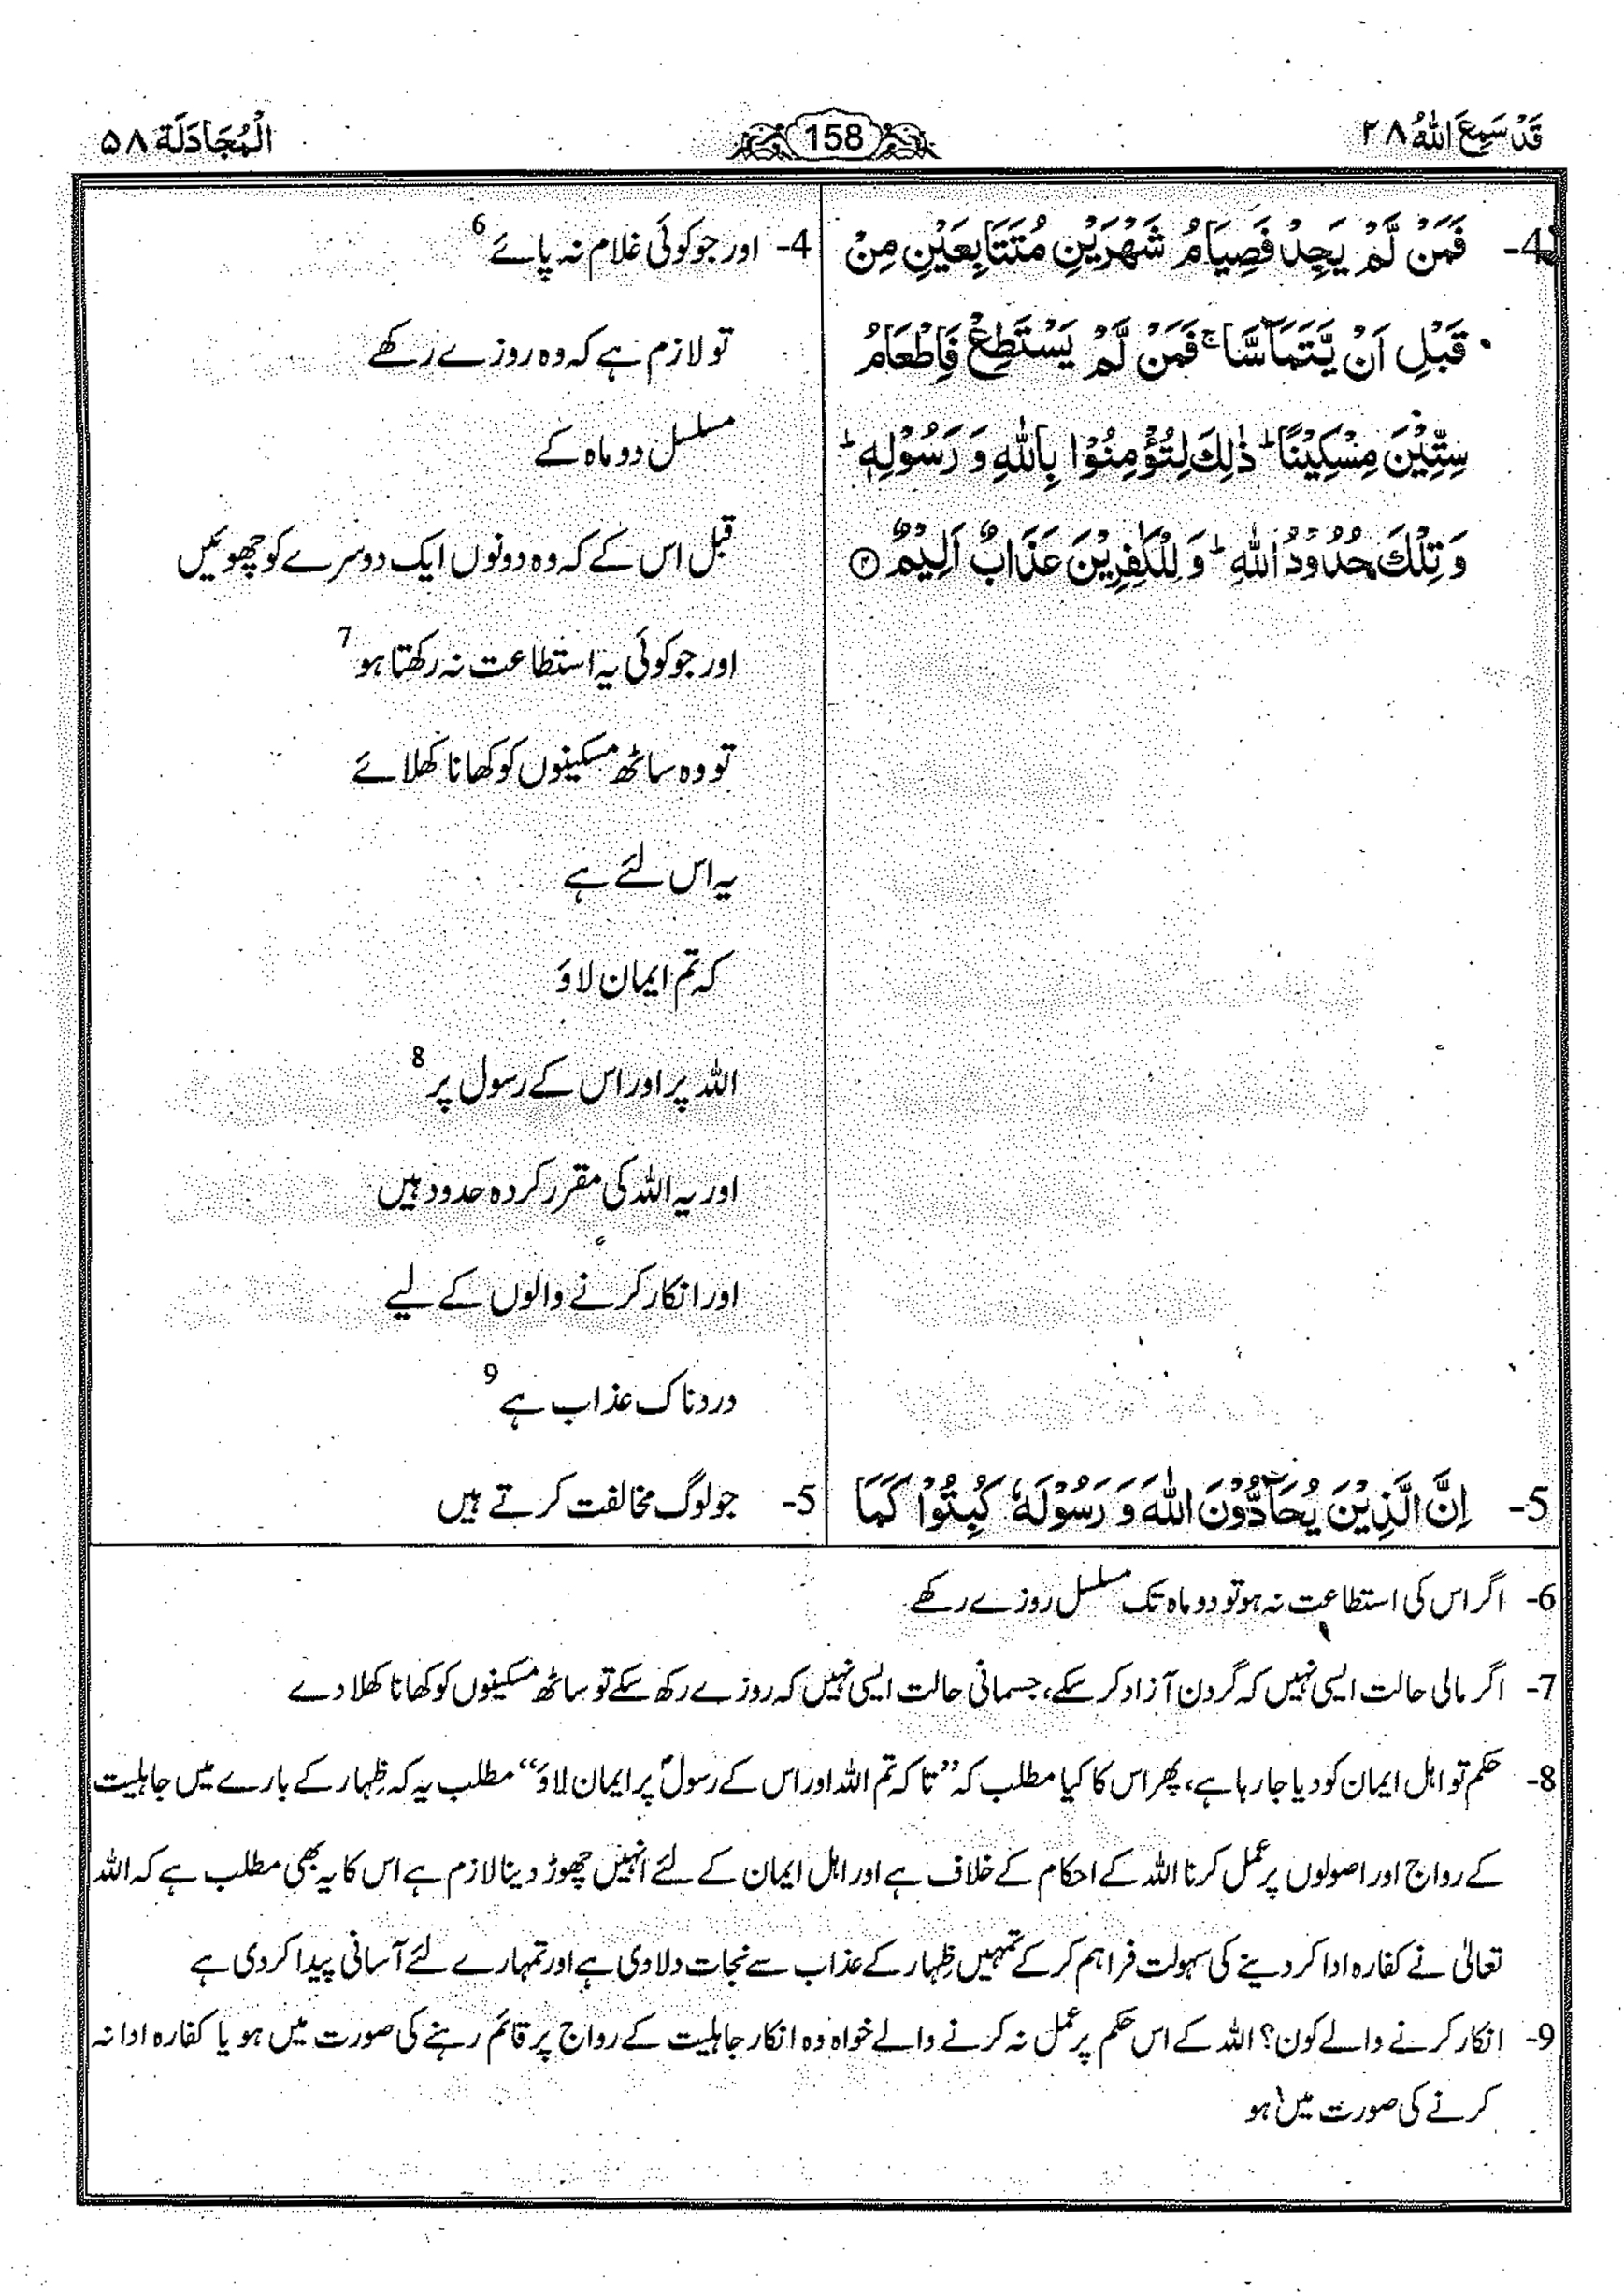 قَدْ سَمِعَ اللّٰهُ ۲۸
158
الْمُجَادَلَة ۵۸
4- فَمَنْ لَّمْ يَجِدْ فَصِيَامُ شَهْرَيْنِ مُتَتَابِعَيْنِ مِنْ
قَبْلِ اَنْ يَّتَمَآسَّا ۚ فَمَنْ لَّمْ يَسْتَطِعْ فَاِطْعَامُ
سِتِّيْنَ مِسْكِيْنًا ؕ ذٰلِكَ لِتُؤْمِنُوْا بِاللّٰهِ وَ رَسُوْلِهٖ ؕ
وَ تِلْكَ حُدُوْدُ اللّٰهِ ؕ وَ لِلْكٰفِرِيْنَ عَذَابٌ اَلِيْمٌ ۴
4- اور جو کوئی غلام نہ پائے 6
تو لازم ہے کہ وہ روزے رکھے
مسلسل دو ماہ کے
قبل اس کے کہ وہ دونوں ایک دوسرے کو چھوئیں
اور جو کوئی یہ استطاعت نہ رکھتا ہو 7
تو وہ ساٹھ مسکینوں کو کھانا کھلائے
یہ اس لئے ہے
کہ تم ایمان لاؤ
اللہ پر اور اس کے رسول پر 8
اور یہ اللہ کی مقرر کردہ حدود ہیں
اور انکار کرنے والوں کے لیے
دردناک عذاب ہے 9
5- اِنَّ الَّذِيْنَ يُحَآدُّوْنَ اللّٰهَ وَ رَسُوْلَهٗ كُبِتُوْا كَمَا
5- جو لوگ مخالفت کرتے ہیں
6- اگر اس کی استطاعت نہ ہو تو دو ماہ تک مسلسل روزے رکھے
7- اگر مالی حالت ایسی نہیں کہ گردن آزاد کر سکے، جسمانی حالت ایسی نہیں کہ روزے رکھ سکے تو ساٹھ مسکینوں کو کھانا کھلا دے
8- حکم تو اہل ایمان کو دیا جا رہا ہے، پھر اس کا کیا مطلب کہ ”تا کہ تم اللہ اور اس کے رسولؐ پر ایمان لاؤ“ مطلب یہ کہ ظِہار کے بارے میں جاہلیت
کے رواج اور اصولوں پر عمل کرنا اللہ کے احکام کے خلاف ہے اور اہل ایمان کے لئے انہیں چھوڑ دینا لازم ہے اس کا یہ بھی مطلب ہے کہ اللہ
تعالیٰ نے کفارہ ادا کر دینے کی سہولت فراہم کر کے تمہیں ظِہار کے عذاب سے نجات دلا دی ہے اور تمہارے لئے آسانی پیدا کر دی ہے
9- انکار کرنے والے کون؟ اللہ کے اس حکم پر عمل نہ کرنے والے خواہ وہ انکار جاہلیت کے رواج پر قائم رہنے کی صورت میں ہو یا کفارہ ادا نہ
کرنے کی صورت میں ہو